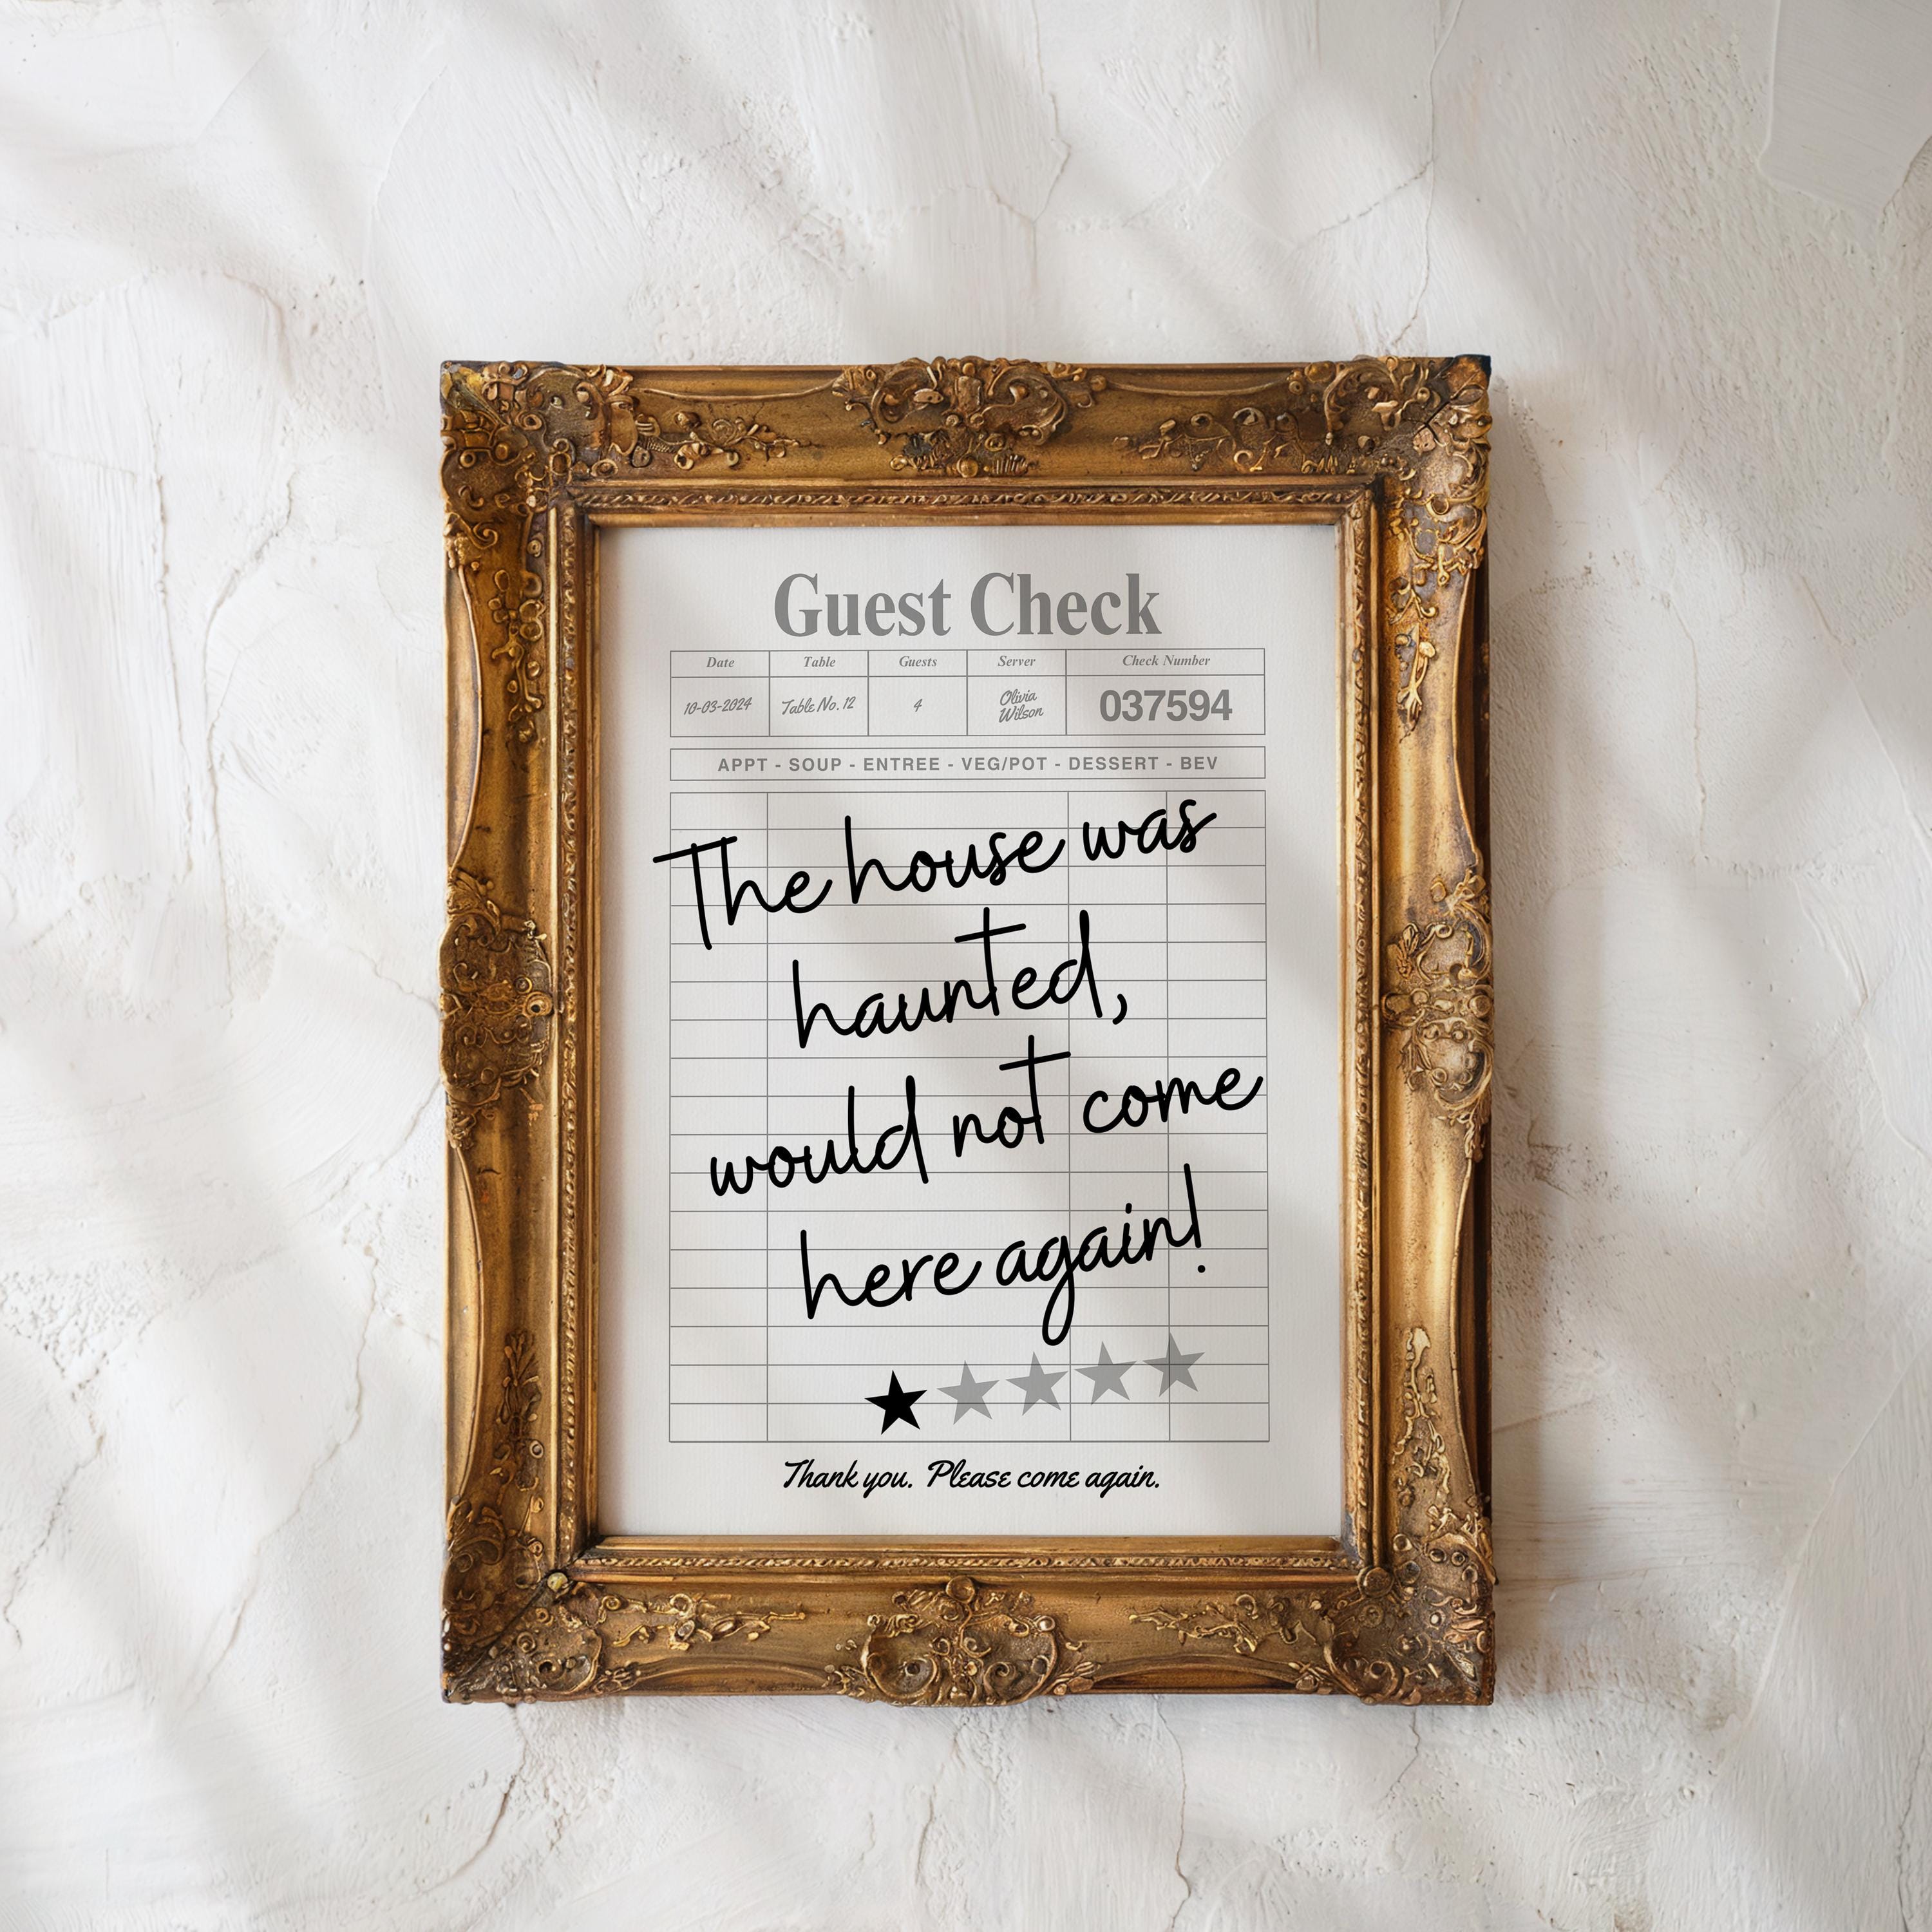 Guest Check
Date Table Guests Server Check Number
10-03-2024 Table No. 12 4 Olivia Wilson 037594
APPT - SOUP - ENTREE - VEG/POT - DESSERT - BEV
The house was
haunted,
would not come
here again!
Thank you. Please come again.